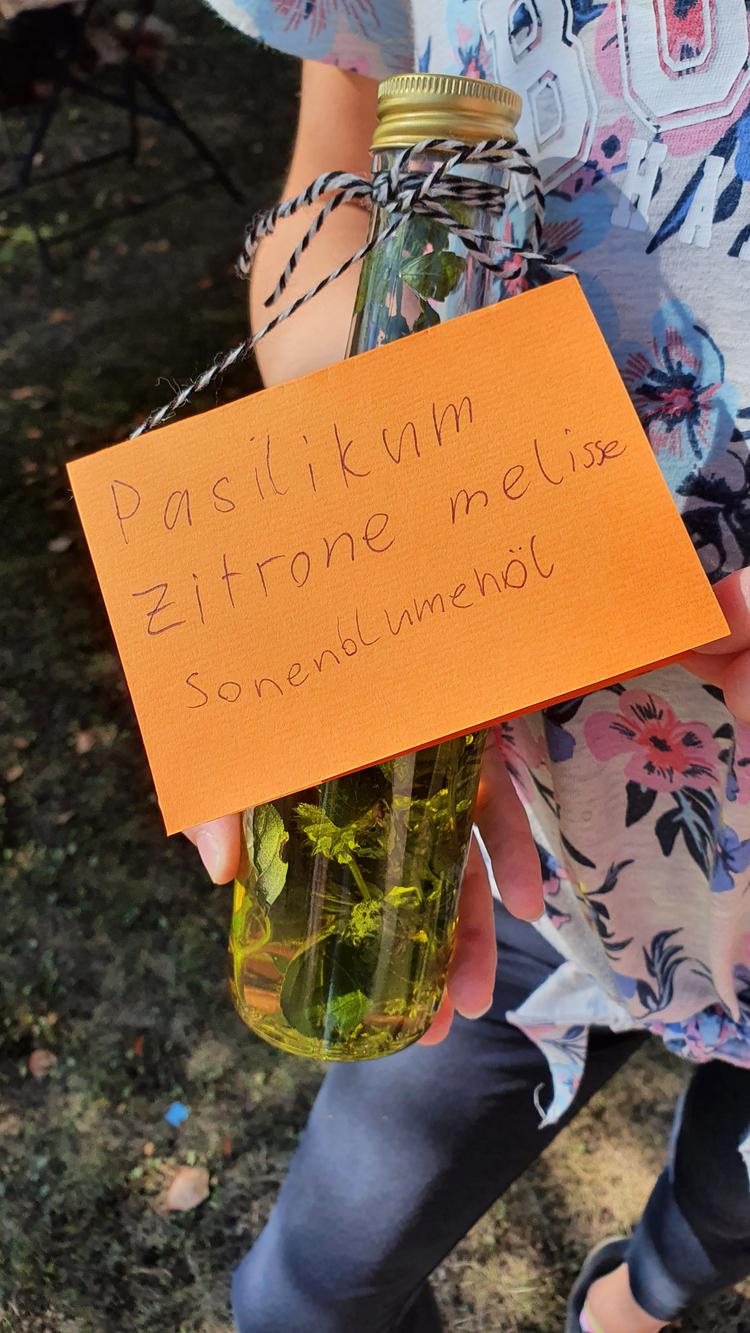 80
HA
Pasilikum
Zitrone melisse
Sonenblumenöl